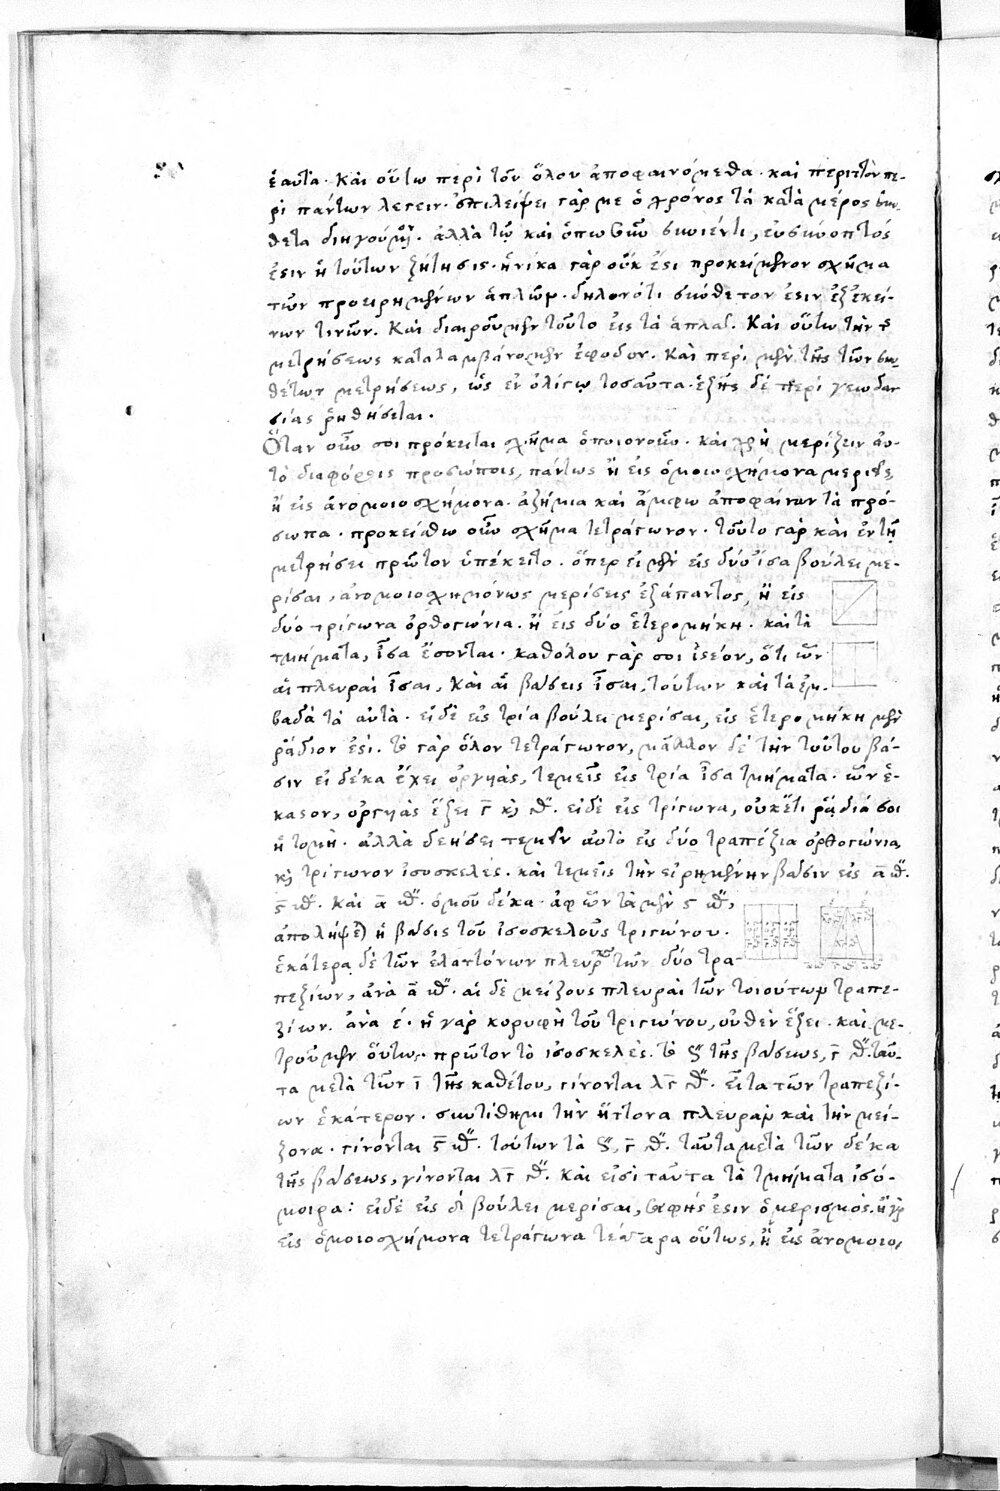 ἑαυτά· καὶ οὕτω περὶ τοῦ ὅλου ἀποφαινόμεθα· καὶ περιττὸν πε-
ρὶ πάντων λέγειν· ἐπιλείψει γάρ με ὁ χρόνος τὰ κατὰ μέρος συν-
θετα διηγούμενον· ἀλλὰ τῷ καὶ ὁπωσοῦν συνιέντι, εὐσύνοπτός
ἐστιν ἡ τούτων ζήτησις· ἡνίκα γὰρ οὐκ ἔστι προκείμενον σχῆμα
τῶν προειρημένων ἁπλῶν· δηλονότι σύνθετον ἐστιν ἐξ ἐκεί-
νων τινῶν. καὶ διαιροῦμεν τοῦτο εἰς τὰ ἁπλᾶ. καὶ οὕτω τὴν τῆς
μετρήσεως καταλαμβάνομεν ἔφοδον. καὶ περὶ μὲν τῆς τῶν συν-
θέτων μετρήσεως, ὡς ἐν ὀλίγῳ τοσαῦτα· ἑξῆς δὲ περὶ γεωδαι-
σίας ῥηθήσεται.
Ὅταν οὖν σοι πρόκειται σχῆμα ὁποιονοῦν· καὶ χρὴ μερίζειν αὐ-
τὸ διαφόροις προσώποις, πάντως ἢ εἰς ὁμοιοσχήμονα μεριεῖς,
ἢ εἰς ἀνομοιοσχήμονα· ἀζήμια καὶ ἄμφω ἀποφαίνων τὰ πρό-
σωπα· προκείσθω οὖν σχῆμα τετράγωνον· τοῦτο γὰρ καὶ ἐν τῇ
μετρήσει πρῶτον ὑπέκειτο. ὅπερ εἰ μὲν εἰς δύο ἴσα βούλει με-
ρίσαι, ἀνομοιοσχημόνως μερίσεις ἐξάπαντος, ἢ εἰς
δύο τρίγωνα ὀρθογώνια. ἢ εἰς δύο ἑτερομήκη· καὶ τὰ
τμήματα, ἴσα ἔσονται· καθόλου γάρ σοι ἰστέον, ὅτι ὧν
αἱ πλευραὶ ἴσαι, καὶ αἱ βάσεις ἴσαι, τούτων καὶ τὰ ἐμ-
βαδὰ τὰ αὐτά· εἰ δὲ εἰς τρία βούλει μερίσαι, εἰς ἑτερομήκη μὲν
ῥᾴδιον ἐστί. τὸ γὰρ ὅλον τετράγωνον, μᾶλλον δὲ τὴν τούτου βά-
σιν εἰ δέκα ἔχει ὀργυιὰς, τεμεῖς εἰς τρία ἴσα τμήματα· ὧν ἕ-
καστον, ὀργυιὰς ἕξει γ̅ καὶ γʹʹ. εἰ δὲ εἰς τρίγωνα, οὐκέτι ῥᾳδία σοι
ἡ τομή· ἀλλὰ δεήσει τεμεῖν αὐτὸ εἰς δύο τραπέζια ὀρθογώνια,
καὶ τρίγωνον ἰσοσκελές. καὶ τεμεῖς τὴν εἰρημένην βάσιν εἰς
ὁμοῦ δέκα· ἀφ' ὧν τὰ μὲν
ἀπολήψεται ἡ βάσις τοῦ ἰσοσκελοῦς τριγώνου.
ἑκάτερα δὲ τῶν ἐλαττόνων πλευρῶν τῶν δύο τρα-
πεζίων, ἀνὰ αἱ δὲ μείζους πλευραὶ τῶν τοιούτων τραπε-
ζίων. ἀνὰ ἡ γὰρ κορυφὴ τοῦ τριγώνου, οὐθὲν ἕξει. καὶ με-
τροῦμεν οὕτω· πρῶτον τὸ ἰσοσκελές. τὸ τῆς βάσεως, ταῦ-
τα μετὰ τῶν ι̅ τῆς καθέτου, γίνονται λγ̅ γʹʹ. εἶτα τῶν τραπεζί-
ων ἑκάτερον· συντίθημι τὴν ἥττονα πλευρὰν καὶ τὴν μεί-
ζονα· γίνονται τούτων τὰ ταῦτα μετὰ τῶν δέκα
τῆς βάσεως, γίνονται λγ̅ γʹʹ. καὶ εἰσὶ ταῦτα τὰ τμήματα ἰσό-
μοιρα: εἰ δὲ εἰς δʹ βούλει μερίσαι, σαφής ἐστιν ὁ μερισμός. ἢ γὰρ
εἰς ὁμοιοσχήμονα τετράγωνα τέσσαρα οὕτως, ἢ εἰς ἀνομοιο,